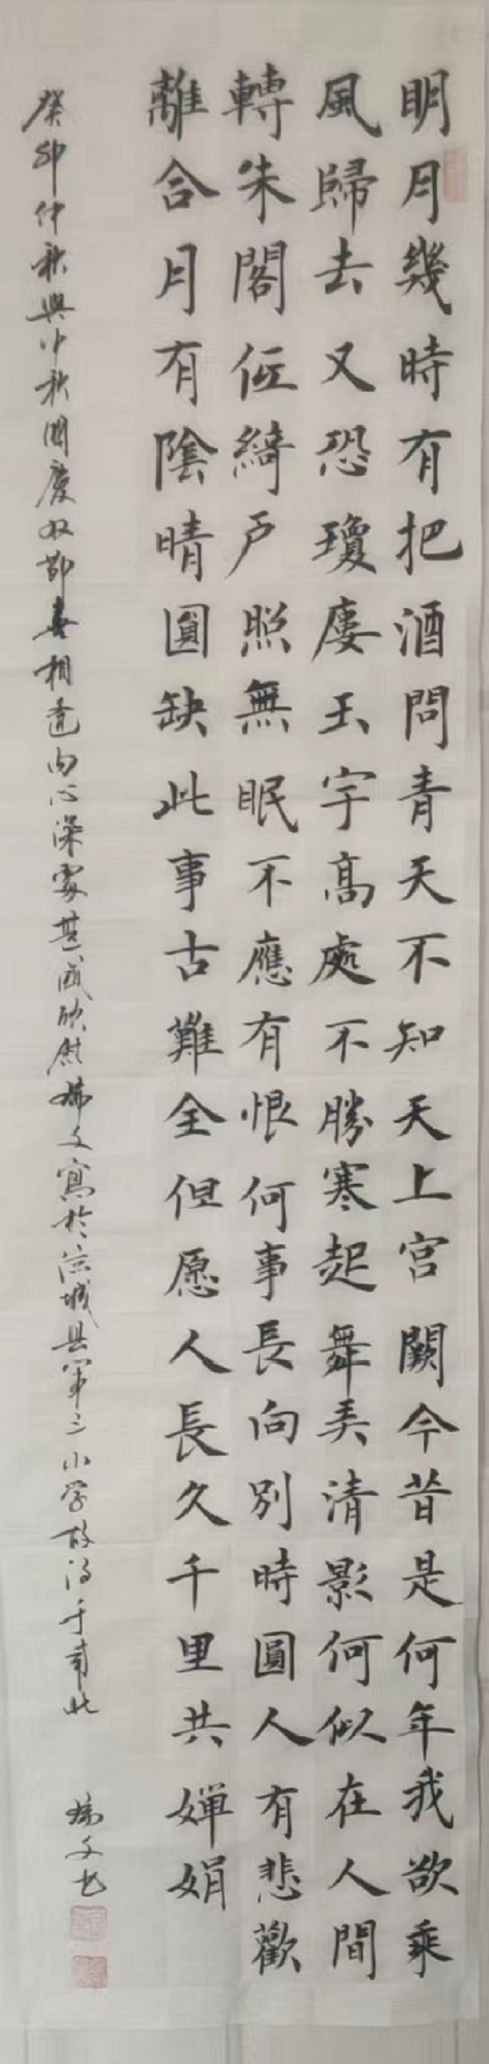 明月幾時有把酒問青天不知天上宫闕今昔是何年我欲乘
風歸去又恐瓊廔玉宇髙處不勝寒起舞弄清影何似在人間
轉朱閣低綺户照無眠不應有恨何事長向別時圓人有悲歡
離合月有陰晴圓缺此事古難全但愿人長久千里共嬋娟
癸卯仲秋與中秋國慶双節喜相逢内心深處甚感欣慰瑞文寫於涼城县第三小学
瑞文书